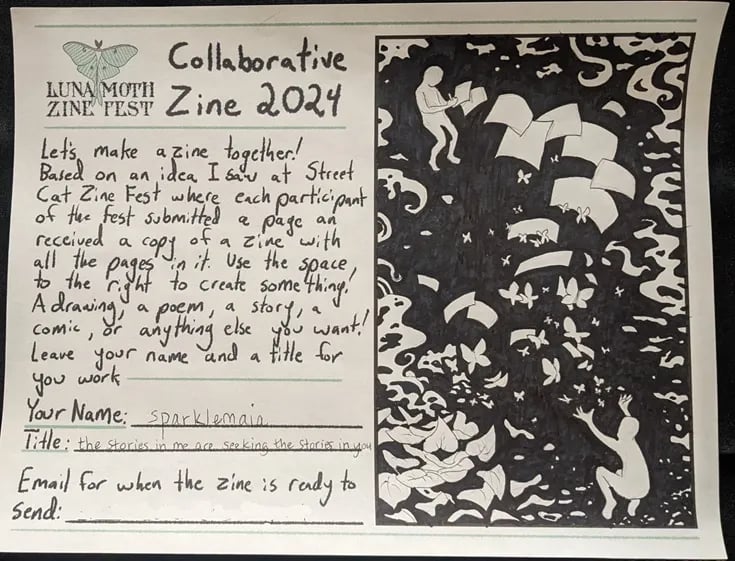 LUNA MOTH
ZINE FEST
Collaborative
Zine 2024
Let's make a zine together!
Based on an idea I saw at Street
Cat Zine Fest where each participant
of the fest submitted a page an
received a copy of a zine with
all the pages in it. Use the space
to the right to create something!
A drawing, a poem, a story, a
comic, or anything else you want!
Leave your name and a title for
you work
Your Name: sparklemain
Title: the stories in me are seeking the stories in you
Email for when the zine is ready to
send: